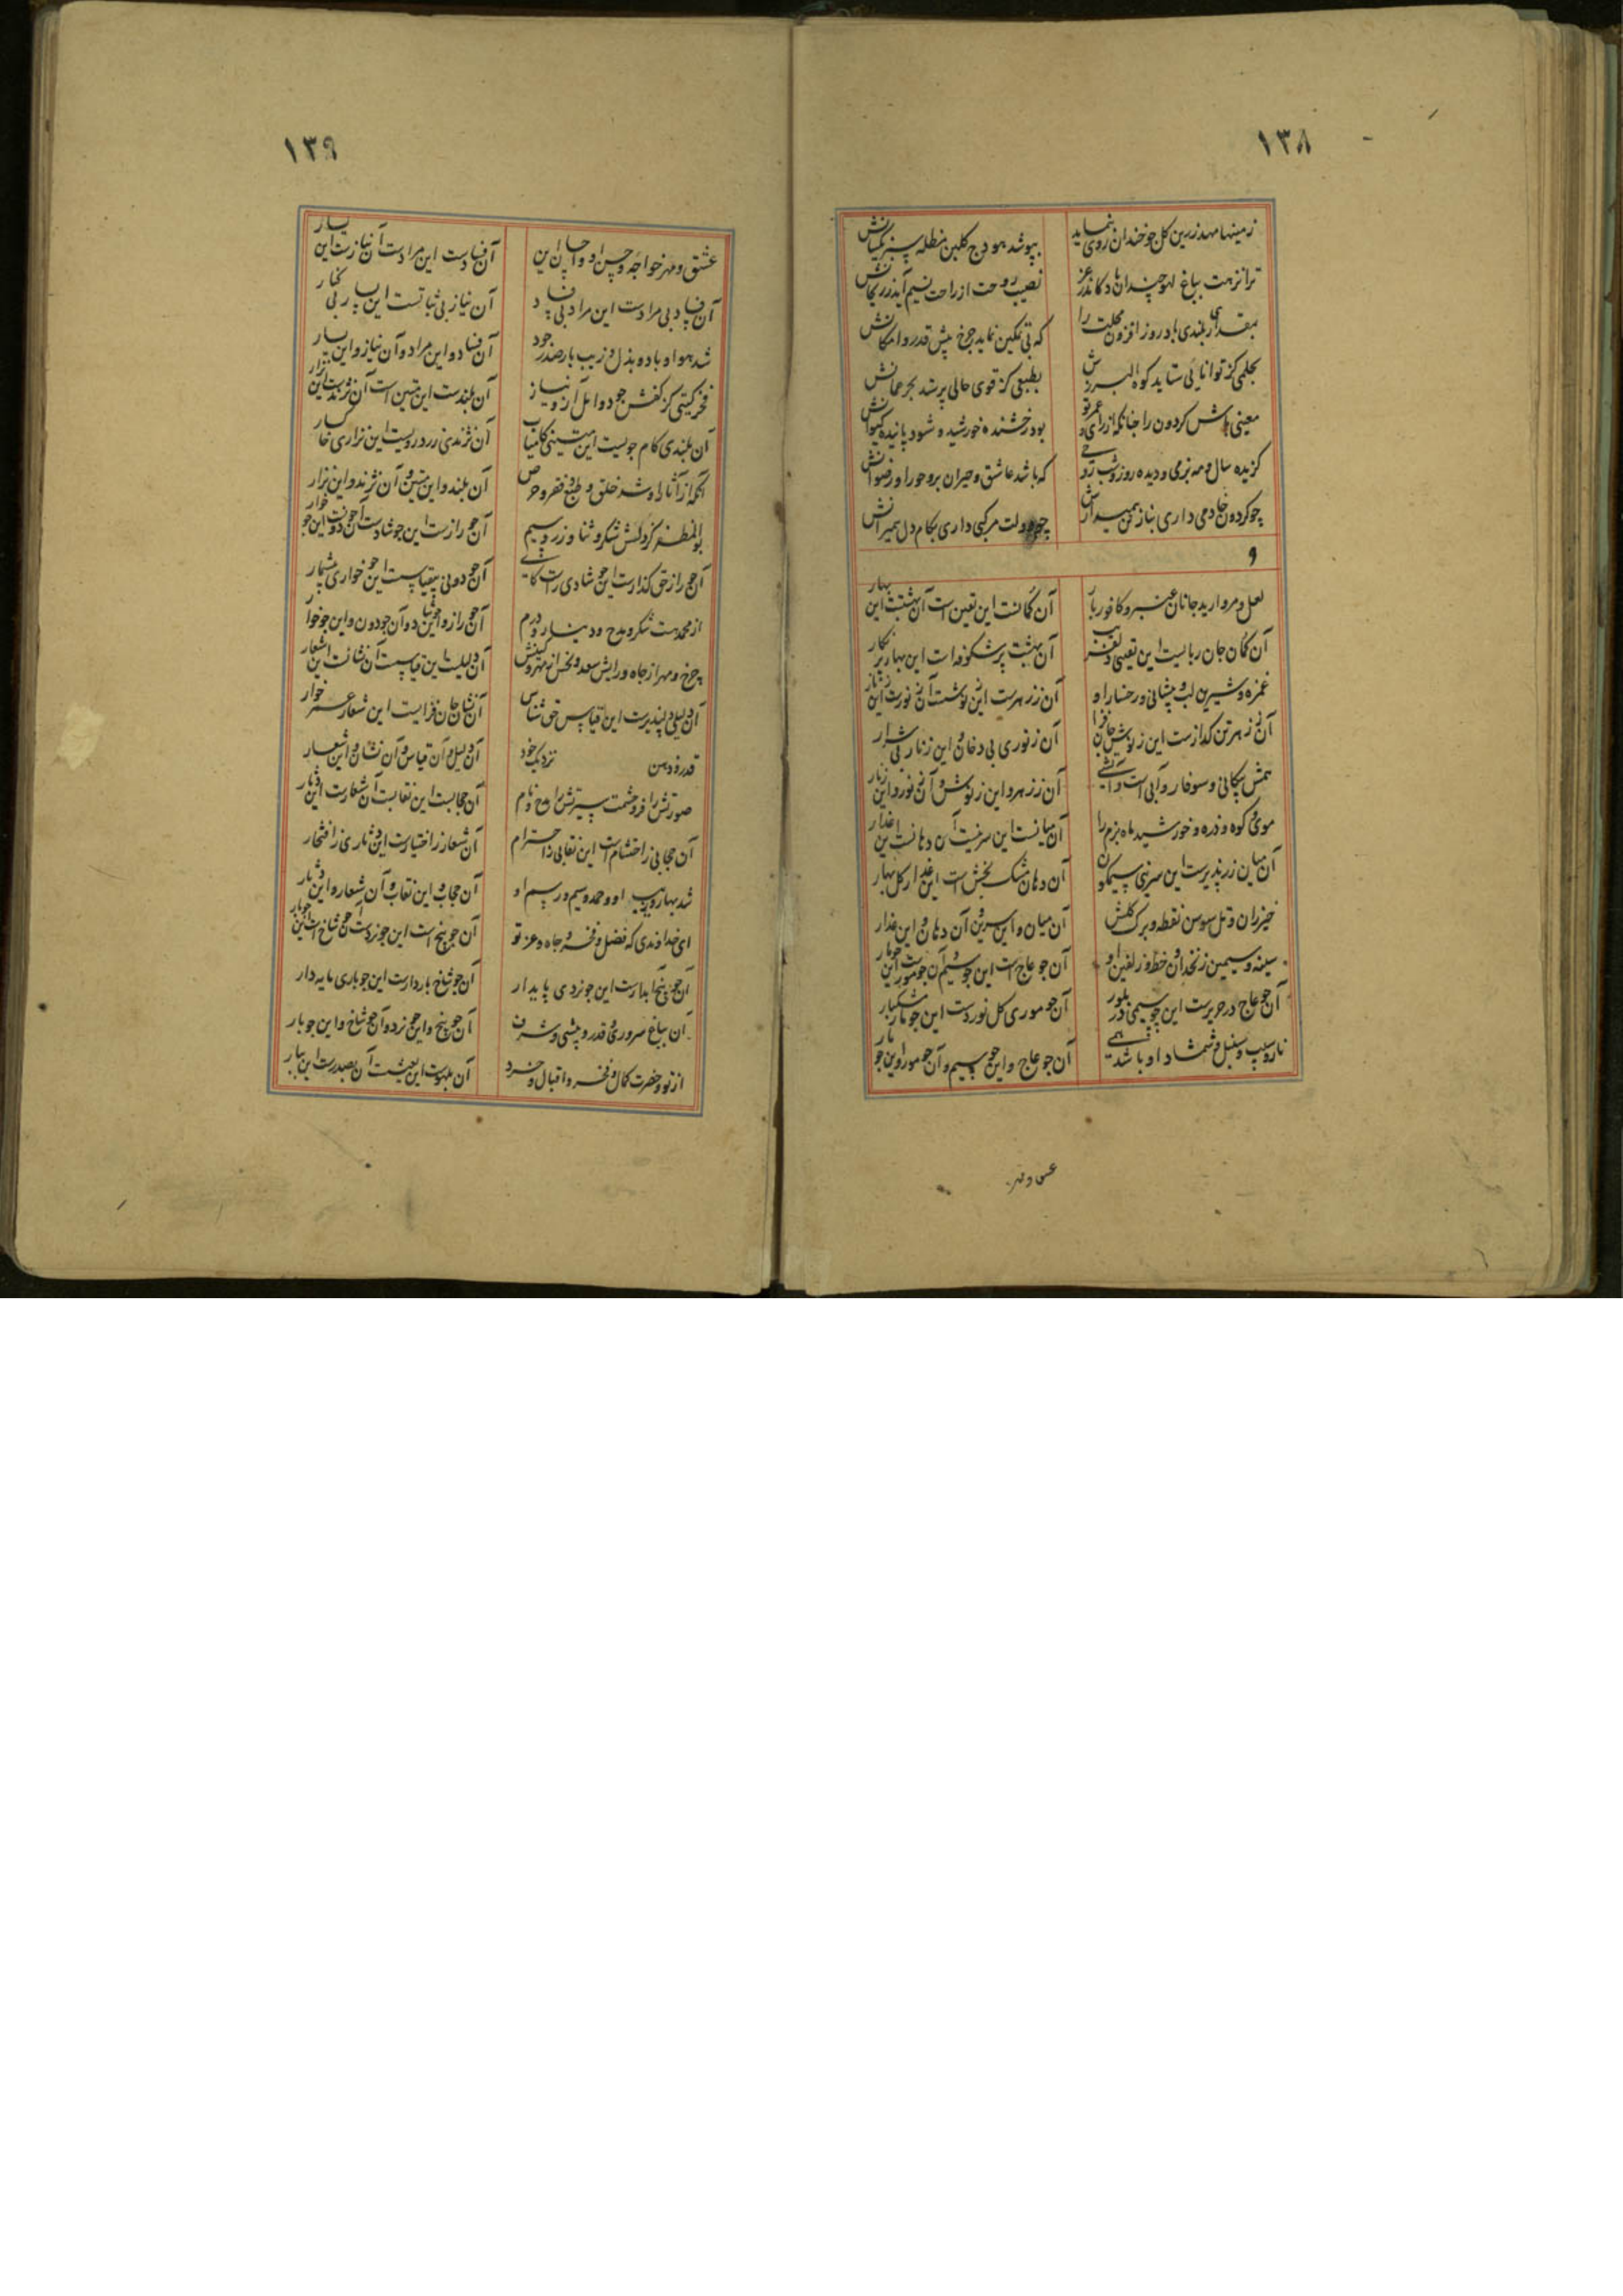 ١٣٨
زمینها مهد زرین کل جو خندان روی بنماید
بپوشد هودج کلبن مظله سبز یکسانش
ترا نزهت بباغ لهو چندان باد کاندر عز
نصیب روحت از راحت نسیم آید ز ریحانش
بمقداری بلندی باد روز افزون محلت را
که بی تمکین نماید چرخ پیش قدر و امکانش
بحلمی کز توانایی ستاید کوه البرزش
بطبعی کز قوی حالی پرستد بحر عمانش
معینی باش کردون را چنانکه از رای و عمر تو
بود رخشنده خورشید و شود پاینده کیوانش
کزیده سال و مه بزمی و دیده روز و شب روحی
که باشد عاشق و حیران برو حورا و رضوانش
چو کردون خادمی داری بناز تن همیدارش
چو دولت مرکبی داری بکام دل همیرانش
و
لعل و مروارید جانان عنبر و کافور بار
آن کمانست این تعین است آن بهشتست این بهار
آن کمان جان ربایست این تعینی دلفریب
آن بهشت پر شکوفه است این بهار پر نکار
غمزه و شیرین لب و پیشانی و رخسار او
آن ز زهرست این ز نوشست آن ز نورست این ز نار
آن ز زهر تن کدازست این ز نوش جان فزا
آن ز نوری بی دخان و این ز نار بی شرار
آن ز زهر و این ز نوش و آن ز نور و این ز نار
موی و کوه و ذره و خورشید ماه بزم را
آن میانست این سرینست آن دهانست این عذار
آن میان زر پذیرست این سرینی سیمکون
آن دهان مشک بخش است این عذار کل بهار
خیزران و تل سوسن نقطه و برک کلش
آن میان و این سرین و آن دهان و این عذار
سینه و سیمین زنخدان و خط و زلفین او
آن جو عاج است این جو سیم آن جو مورست این جو مار
آن جو عاج در حریرست این جو سیمی در بلور
آن جو موری کل نوردست این جو مار مشکبار
نار و سیب و سنبل و شمشاد او باشد همی
آن جو عاج و این جو سیم و آن جو مور و این جو مار
عشق و مهر
١٣٩
عشق و مهر خواجه و حسن او و احسان این
آن فسادست این مرادست آن نیازست این یسار
آن فساد بی مرادست این مراد بی فساد
آن نیاز بی ثباتست این یسار بی کنار
شد هوا و باد و بذل و زیب بار صدر جود
آن فساد و این مراد و آن نیاز و این یسار
فخر کیتی کز کفش جود و امل آز و نیاز
آن بلندست این متین است آن نژندست این نزار
آن بلندی کام جویست این متینی کامیاب
آن نژندی زرد رویست این نزاری خاکسار
آنکه از آثار او شد خلق و طبع و فقر و حرص
آن بلند و این متین و آن نژند و این نزار
بوالمظفر کز دلش شکر و ثنا و زر و سیم
آن جو رازست این جو شادست آن جو دونست این جو خوار
آن جو راز حق کذارست این جو شادی راست کاشی
آن جو دونی بیقیاسست این جو خواری بیشمار
از محمدت شکر و مدح و دینار و درم
آن جو راز و این جو شاد و آن جو دون و این جو خوار
چرخ و مهر از جاه و رایش سعد و نحس از مهر و کینش
آن دلیلست این قیاسست آن نشانست این شعار
آن دلیلی دلپذیرست این قیاس حق شناس
آن نشان جان فزایست این شعار عمر خوار
قدر و دین نزدیک خود
آن دلیل و آن قیاس و آن نشان و این شعار
صورتش را فر و حشمت سیرتش را مدح و نام
آن حجابست این نقابست آن شعارست این دثار
آن حجابی ز احتشام است این نقابی ز احترام
آن شعار از اختیارست این دثاری ز افتخار
شد بهار و زیب او و حمد و سیم و رسم او
آن حجاب و این نقاب و آن شعار و این دثار
ای خداوندی که فضل و فخر و جاه و عز تو
آن جو بیخ است این جو نردست آن جو شاخ است این جو بار
آن جو بیخ آبدارست این جو نردی پایدار
آن جو شاخ باردارست این جو باری مایه دار
آن بباغ سروری و قدر و بیشی و شرف
آن جو بیخ و این جو نرد و آن جو شاخ و این جو بار
از تو و حضرت کمال و فخر و اقبال و خرد